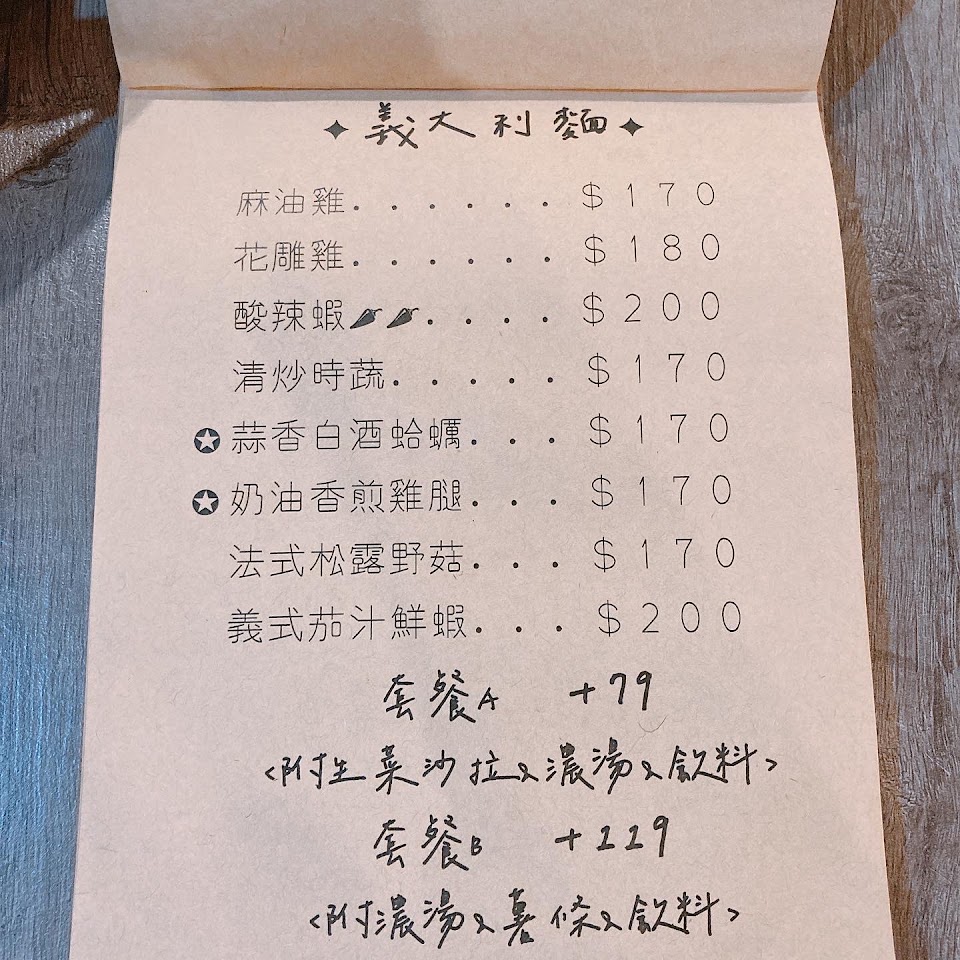 ✦義大利麵✦
麻油雞......$170
花雕雞......$180
酸辣蝦🌶🌶....$200
清炒時蔬.....$170
✪蒜香白酒蛤蠣...$170
✪奶油香煎雞腿...$170
法式松露野菇...$170
義式茄汁鮮蝦...$200
套餐A +79
<附生菜沙拉、濃湯、飲料>
套餐B +119
<附濃湯、薯條、飲料>